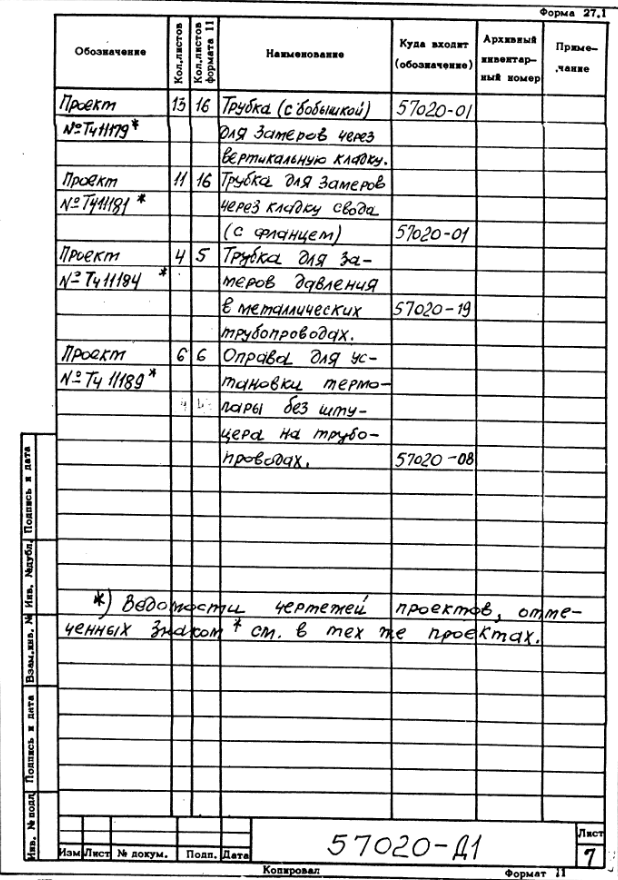 Форма 27.1
Обозначение
Кол.листов
Кол.листов формата 11
Наименование
Куда входит (обозначение)
Архивный инвентарный номер
Примечание
Проект 13 16 Трубка (с бобышкой) 57020-01
№Т411179* для замеров через
вертикальную кладку.
Проект 11 16 Трубка для замеров
№Т411181 * через кладку свода
(с фланцем) 57020-01
Проект 4 5 Трубка для за-
№Т411184 * меров давления
в металлических 57020-19
трубопроводах.
Проект 6 6 Оправа для ус-
№Т411189* тановки термо-
пары без шту-
цера на трубо-
проводах. 57020-08
*) Ведомости чертежей проектов, отме-
ченных знаком * см. в тех же проектах.
Инв. № подл
Подпись и дата
Взам.инв. №
Инв. №дубл.
Подпись и дата
Изм Лист № докум. Подп. Дата
57020-Д1
Лист
7
Копировал Формат 11